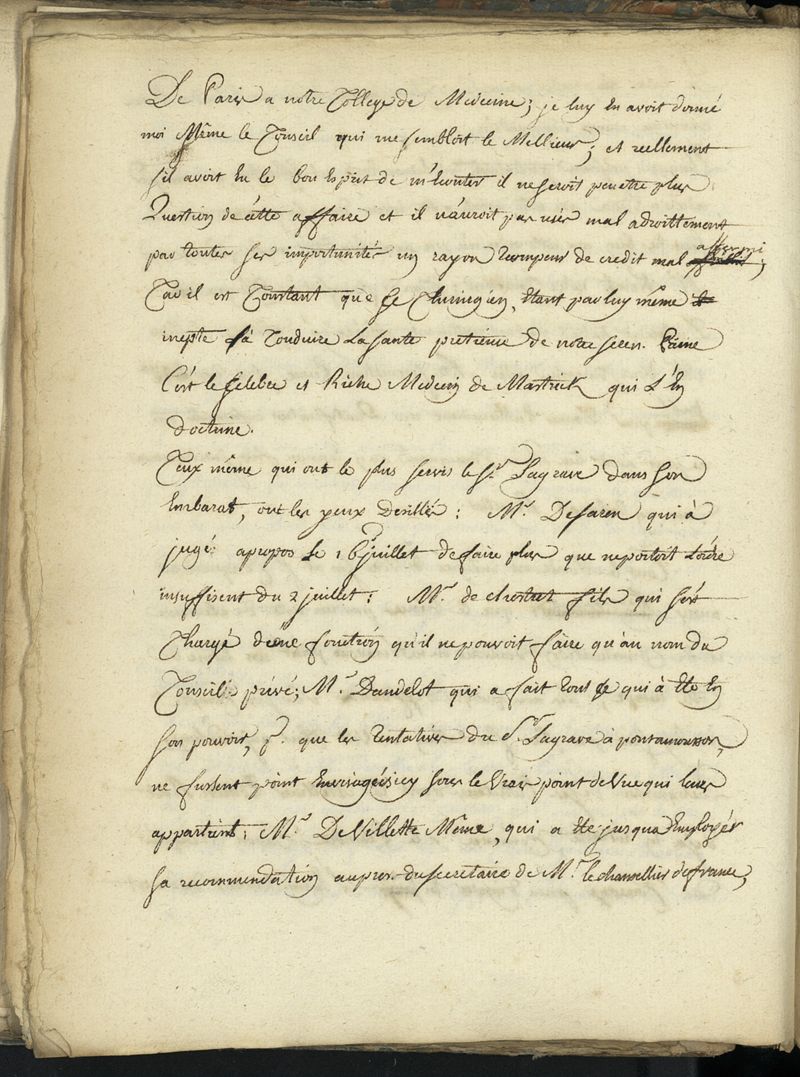 De Paris a notre College de Medecine; je luy en avoit donné
moi Même le Conseil qui me sembloit le Mellieur; et reellement
sil avoit Eu le bon Esprit de m'Ecouter il ne seroit peutetre plus
Question de cétte affaire et il n'auroit pas usér mal adroittement
par toutes ses importunités un rayon trompeur de credit mal affermi;
Car il est Constant que Ce Chirurgien, Etant par luy même
inepte à Conduire La santé pretieuse de notre seren. Prince
C'ést le Celebre et Riche Medecin de Mastrick qui L'En
doctrine.
Ceux même qui ont le plus servis le sr. Lagrave dans son
Embarat, ont les yeux desillés: Mr. Desaren qui à
jugé apropos Le 16 juillet de faire plus que ne portoit L'ordre
insuffisent du 2 juillet: Mr. de chestret fils qui s'ést
Chargé d'eune fonction qu'il ne pouvoit faire qu'au nom du
Conseil privé; Mr. Dandelot qui a fait tous Ce qui à Eté En
son pouvoir, pr. que les Tentatives du Sr. Lagrave à pontamousson,
ne fussent point Envisagéis icy sous le Vrais point de Vue qui leurs
appartient; Mr. De Villette Même, qui a Eté jusqua Employér
sa recommendation aupres du secretaire de Mr. le chancellier de france,